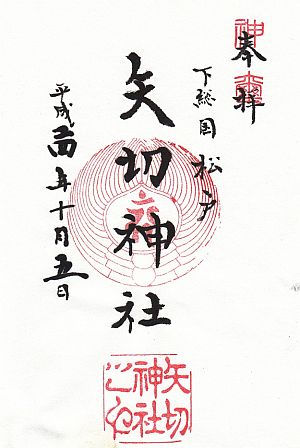 奉拝
下総国松戸
矢切神社
平成二四年十月五日
矢切
神社